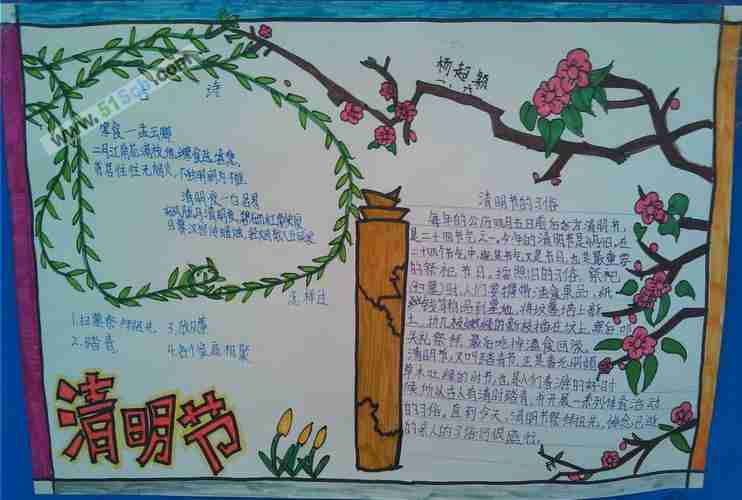 www.515cn.com
诗
杨超颖
寒食—孟云卿
二月江南花满枝,他乡寒食远堪悲,
贫居往往无烟火,不独明朝为子推
清明夜—白居易
好风胧月清明夜,碧砌红轩
怎样过
1.扫墓祭拜祖先 3.放
2.踏青 4.各个家庭相聚
清明节
清明节的习俗
每年的公历四月五日前后为清明节,
是二十四节气之一。今年的清明节是4月
二十四个节气中,既是节气又是节日,也是最重要
的祭祀节日。按照旧的习俗,祭祀
(扫墓)时,人们要携带酒食果品、纸
钱等物品到墓地,将坟墓培上新
土,折几枝嫩绿的新枝插在坟上,然后叩
头行礼祭拜,最后吃掉酒食回家。
清明节,又叫踏青节,正是春光明媚
草木吐绿的时节,也是人们春游的好时
候,所以古人有清明踏青,并开展一系列体育活动
的习俗。直到今天,清明节祭拜祖先,悼念已逝
的亲人的习俗仍很盛行。